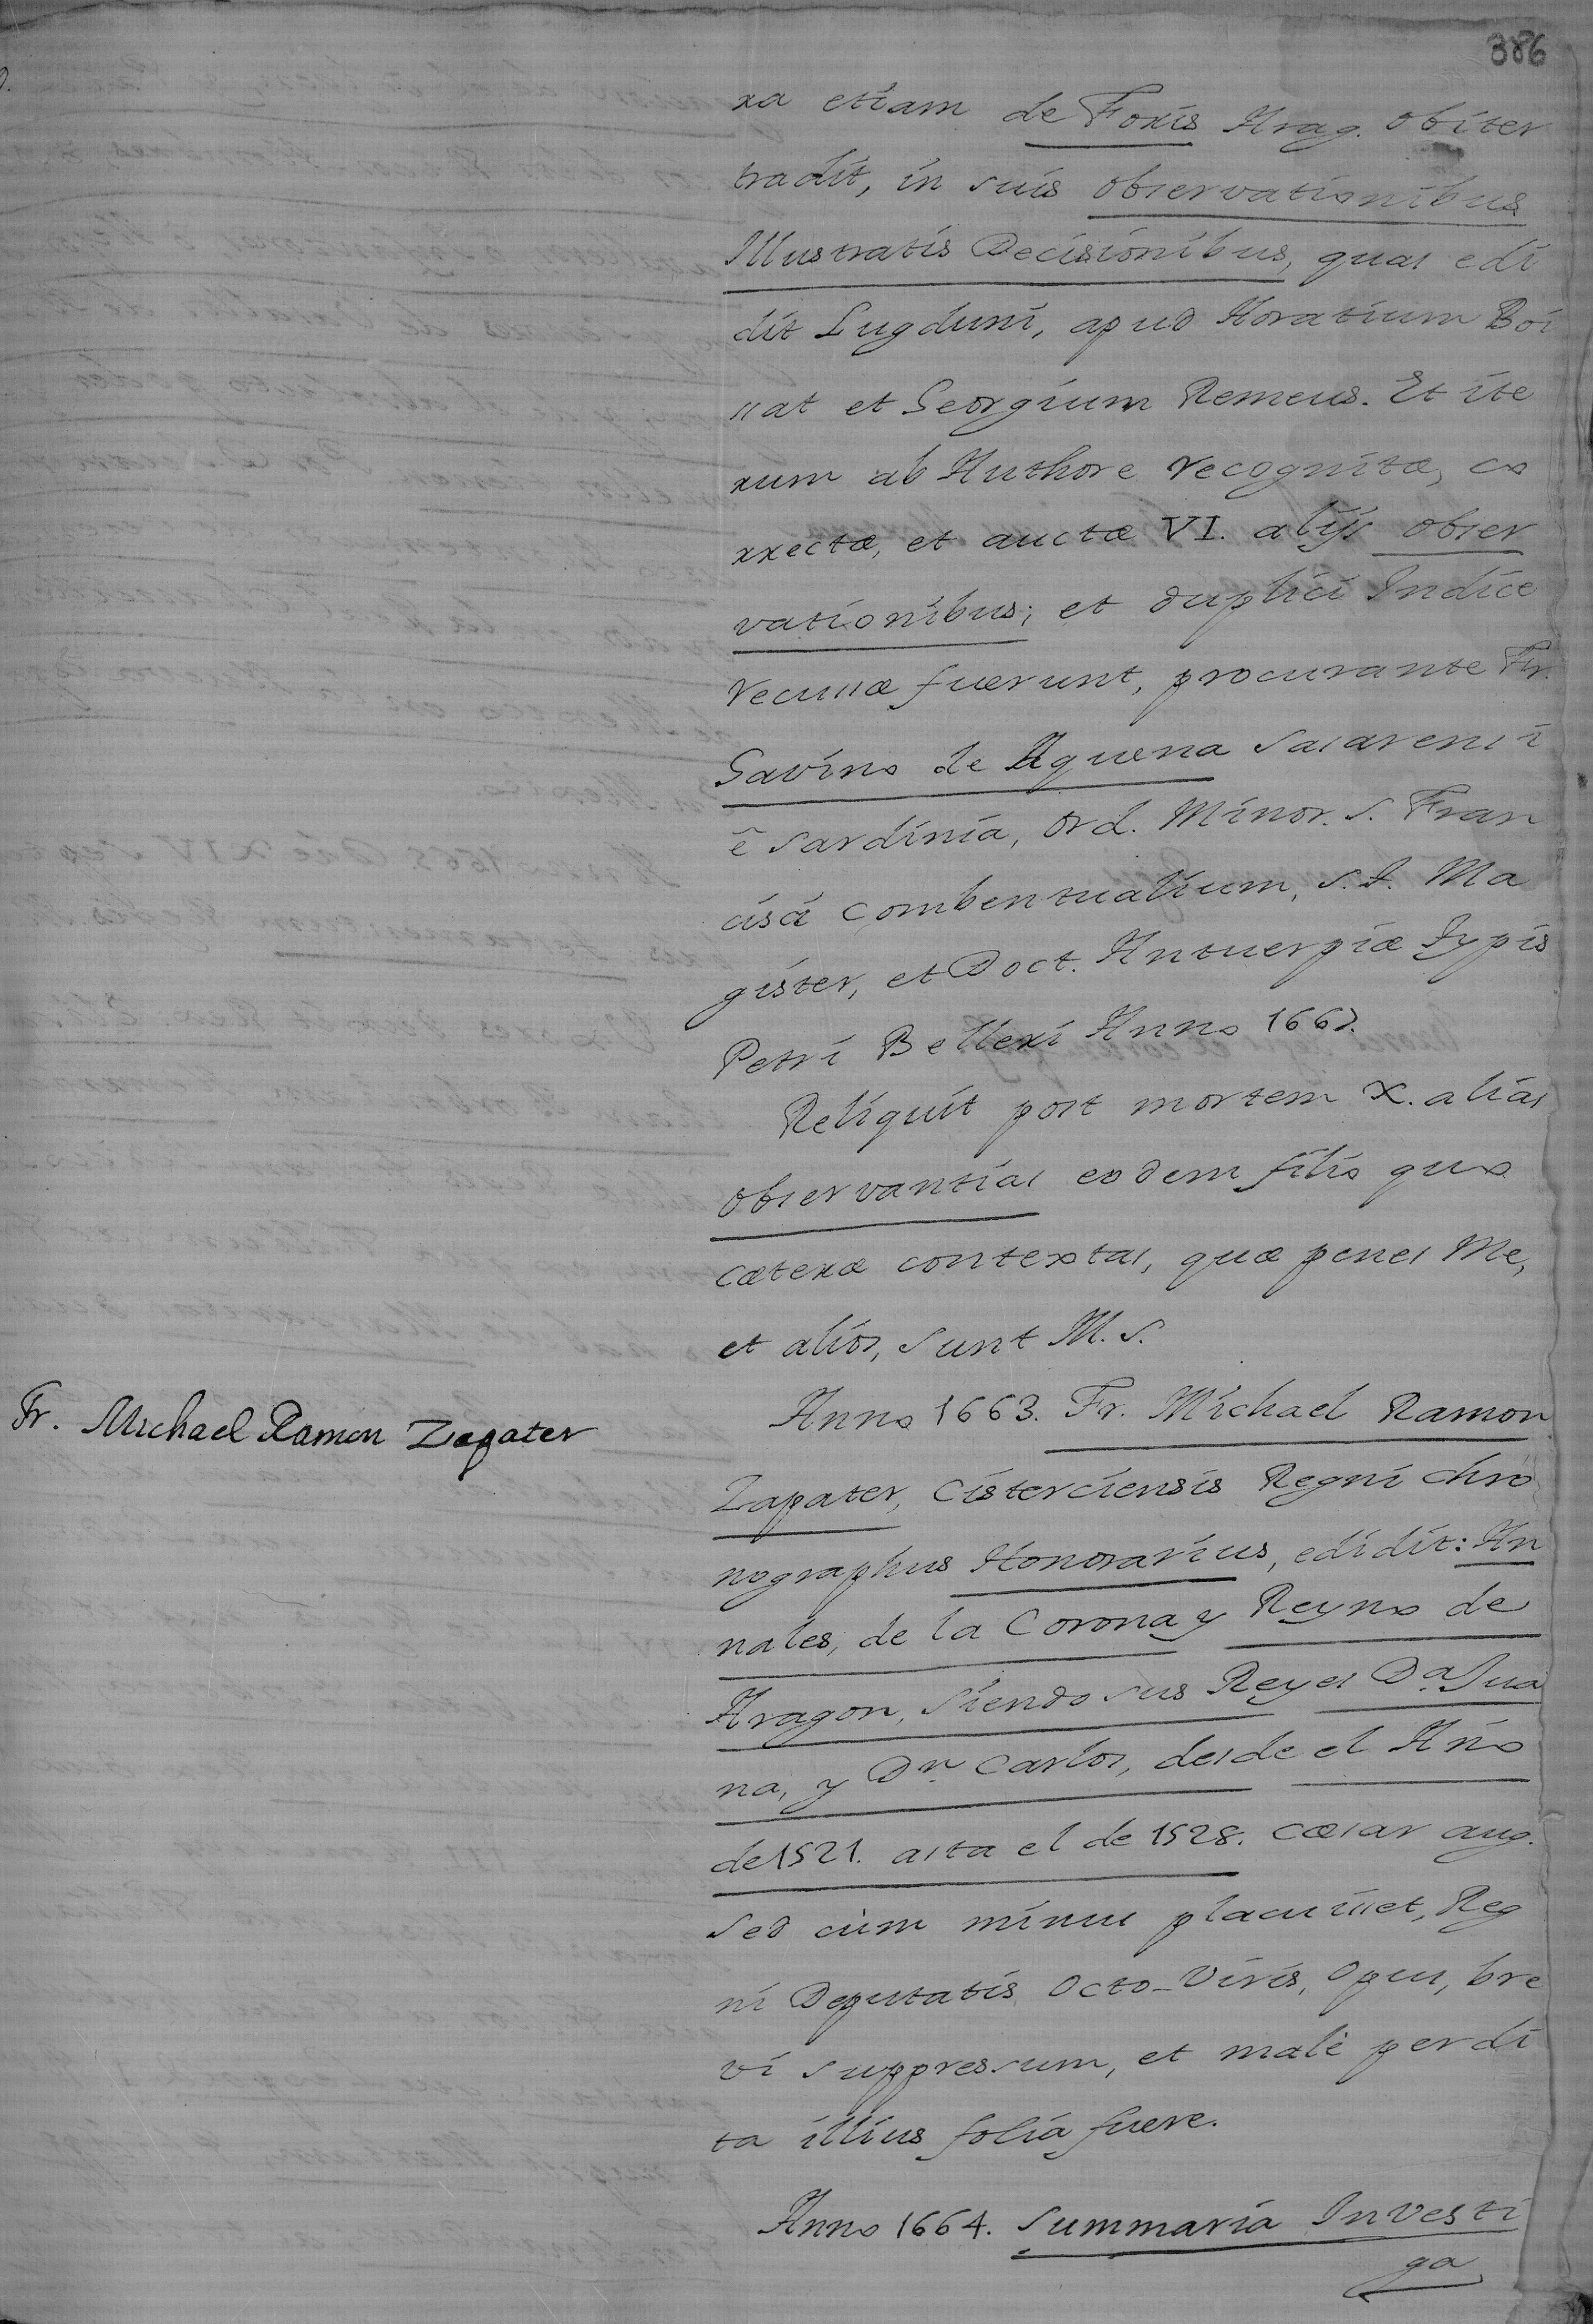 386
ra etiam de Foris Arag. obiter
tradit, in suis observationibus
Illustratis Decisionibus, quas edi
dit Lugduni, apud Horatium Boi
ssat et Georgium Remeus. Et ite
rum ab Authore recognitæ, co
rrectæ, et auctæ VI. alijs obser
vationibus; et duplici Indice
recussæ fuerunt, procurante Fr.
Gavino de Aquena Sasarensi
ẽ Sardinia, Ord. Minor. S. Fran
cisci Combentualium, S.T. Ma
gister, et Doct. Antuerpiæ Typis
Petri Belleri Anno
Reliquit post mortem X. alias
observantias eodem filo quo
cæteræ contextas, quæ penes Me,
et alios, sunt M.S.
Fr. Michael Ramon Zapater
Anno 1663. Fr. Michael Ramon
Zapater, Cisterciensis Regni Chro
nographus Honorarius, edidit: An
nales, de la Corona y Reyno de
Aragon, siendo sus Reyes Dª Jua
na, y Dn Carlos, desde el Año
de 1521. asta el de 1528. Cæsar aug.
Sed cùm minus placuisset, Reg
ni Deputatis Octo-Viris, Opus, bre
vi suppressum, et malè perdi
ta illius folia fuere.
Anno 1664. Summaria Investi
ga